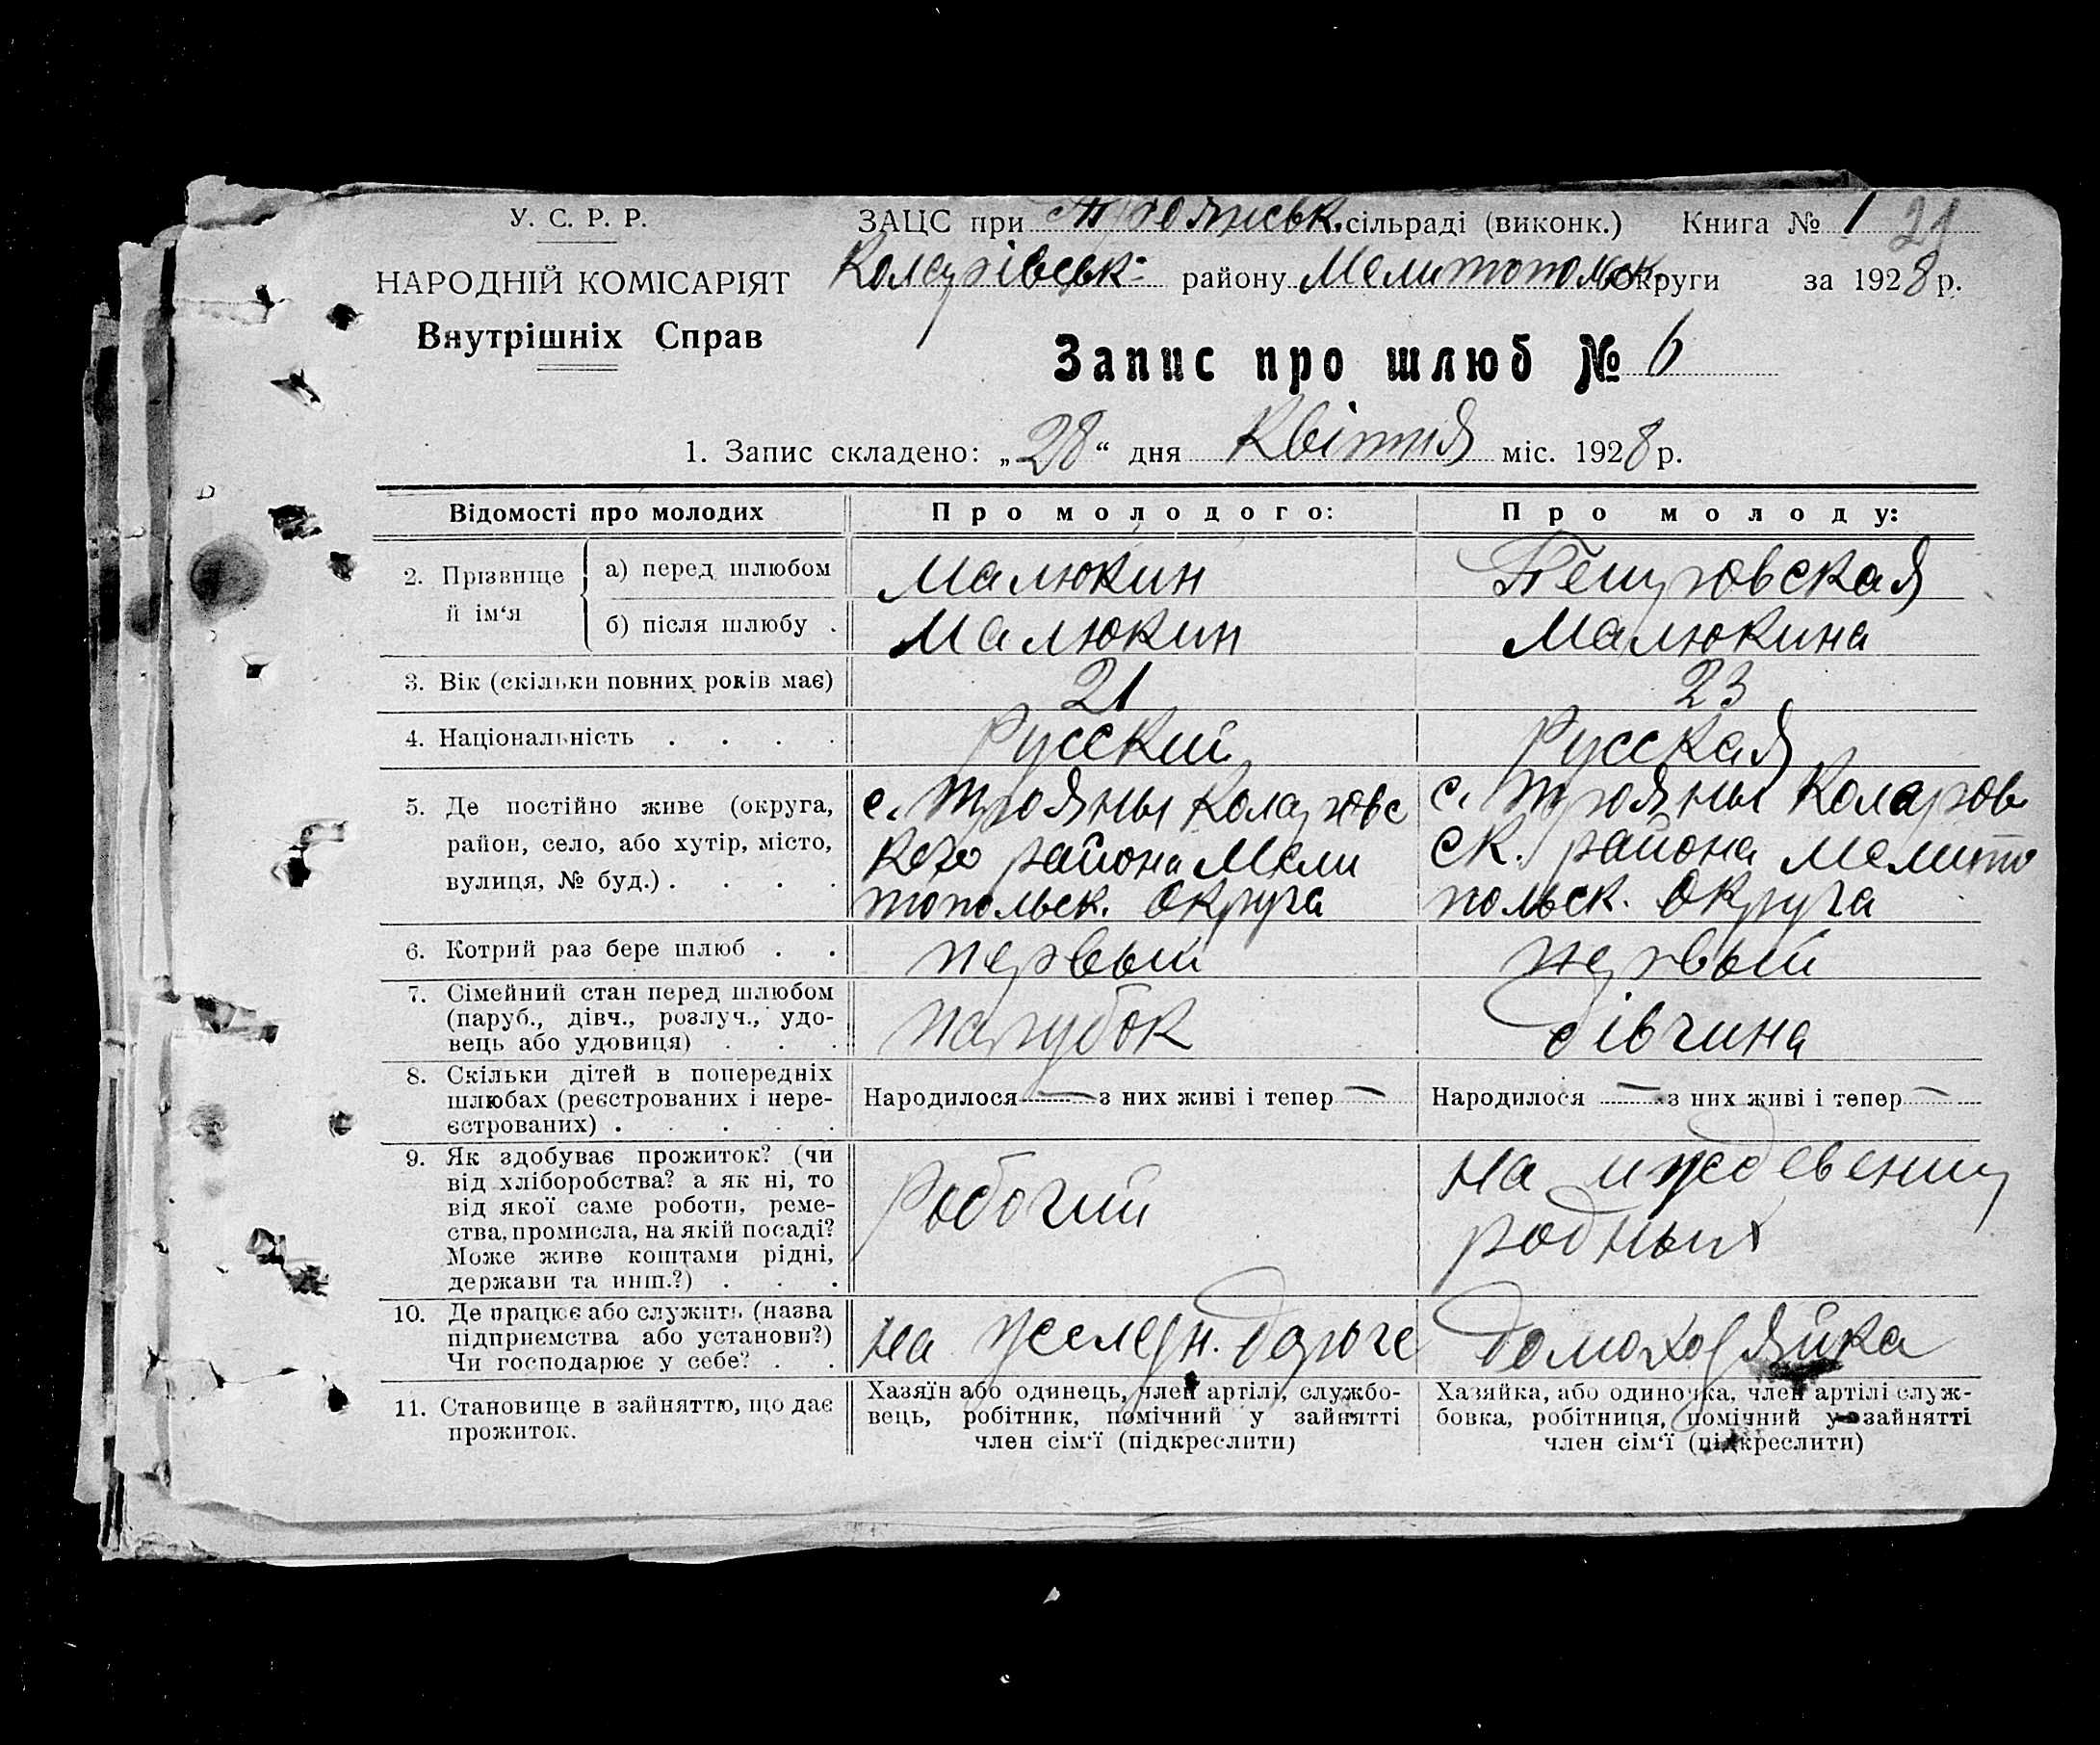 У. С. Р. Р.
НАРОДНІЙ КОМІСАРІЯТ
Внутрішніх Справ
ЗАЦС при Троянськ. сільраді (виконк.) Книга № 1 21
Коларівськ. району Мелитопольск округи за 1928 р.
Запис про шлюб № 6
1. Запис складено: „28“ дня Квітня міс. 1928 р.
Відомості про молодих
Про молодого:
Про молоду:
2. Прізвище й ім‘я
а) перед шлюбом
Малюкин
Петровская
б) після шлюбу .
Малюкин
Малюкина
3. Вік (скільки повних років має)
21
23
4. Національність . . . .
Русский
Русская
5. Де постійно живе (округа,
район, село, або хутір, місто,
вулиця, № буд.) . . . .
с. Трояны Коларовс
кого района Мели
топольск. Округа
с. Трояны Коларов
ск. района Мелито
польск. Округа
6. Котрий раз бере шлюб . .
первый
первый
7. Сімейний стан перед шлюбом
(паруб., дівч., розлуч., удо-
вець або удовиця) . . .
парубок
дівчина
8. Скільки дітей в попередніх
шлюбах (реєстрованих і нере-
єстрованих) . . . . .
Народилося — з них живі і тепер —
Народилося — з них живі і тепер —
9. Як здобуває прожиток? (чи
від хліборобства? а як ні, то
від якої саме роботи, реме-
ства, промисла, на якій посаді?
Може живе коштами рідні,
держави та инш.?) . . .
Робочий
на иждевении
родных
10. Де працює або служить (назва
підприємства або установи?)
Чи господарює у себе? . .
на желедн. дороге
домохозяйка
11. Становище в зайняттю, що дає
прожиток.
Хазяїн або одинець, член артілі, службо-
вець, робітник, помічний у зайнятті
член сім‘ї (підкреслити)
Хазяйка, або одиночка, член артілі служ-
бовка, робітниця, помічний у зайнятті
член сім‘ї (підкреслити)